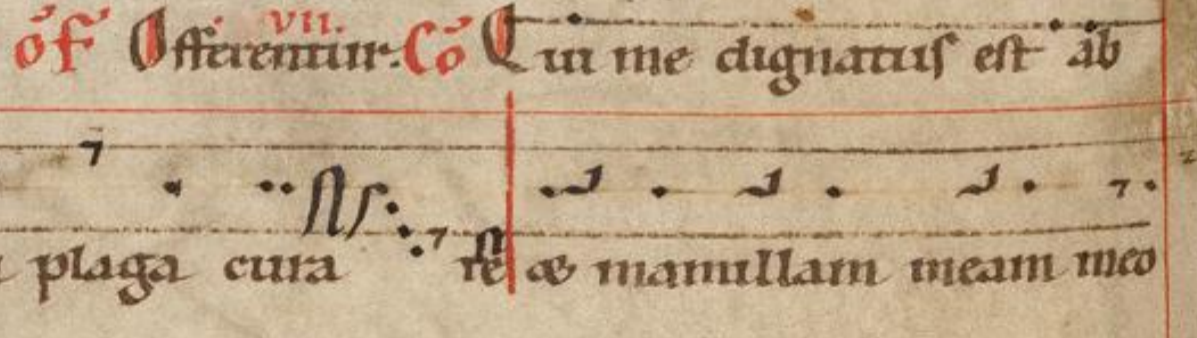 Of Offerentur. VII. Co Qui me dignatus est ab
plaga cura re & mamillam meam meo